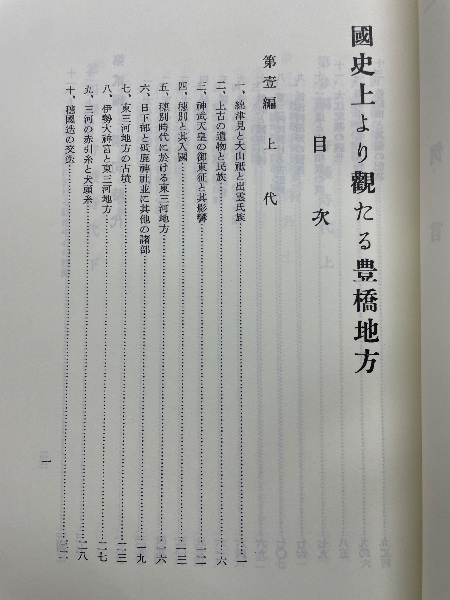 國史上より觀たる豊橋地方
目次
第壹編 上代
一、綿津見と大山祗と出雲氏族……一
二、上古の遺物と民族……六
三、神武天皇の御東征と其影響……一一
四、穗別と其入國……一三
五、穗別時代に於ける東三河地方……一六
六、日下部と砥鹿神社並に其他の諸部……一九
七、東三河地方の古墳……二三
八、伊勢大神宮と東三河地方……二七
九、三河の赤引糸と犬頭糸……二八
十、穗國造の交迭……三二
一